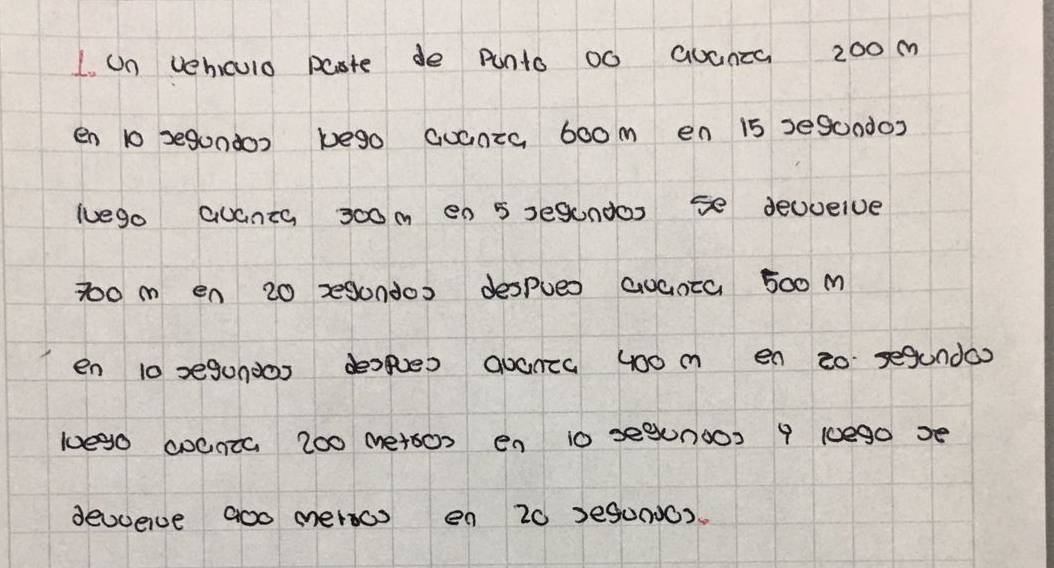 1. Un vehiculo parte de Punto 00 avanza 200 m
en 10 segundos luego avanza 600 m en 15 segundos
luego avanza 300 m en 5 segundos se devuelve
700 m en 20 segundos despues avanza 500 m
en 10 segundos despues avanza 400 m en 20 segundos
luego avanza 200 metros en 10 segundos y luego se
devuelve 900 metros en 20 segundos.